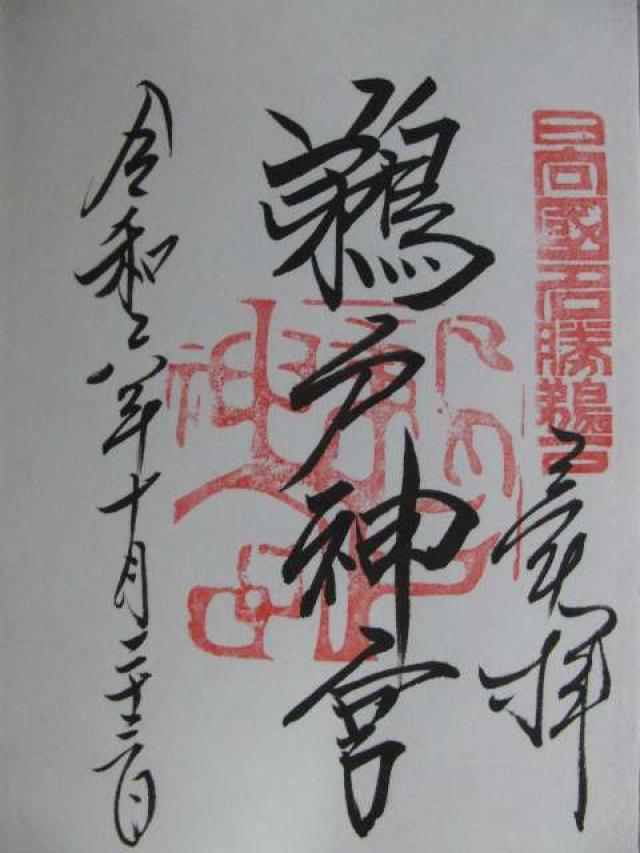 日向國名勝鵜戸
奉拝
鵜戸神宮
令和六年十月二十二日